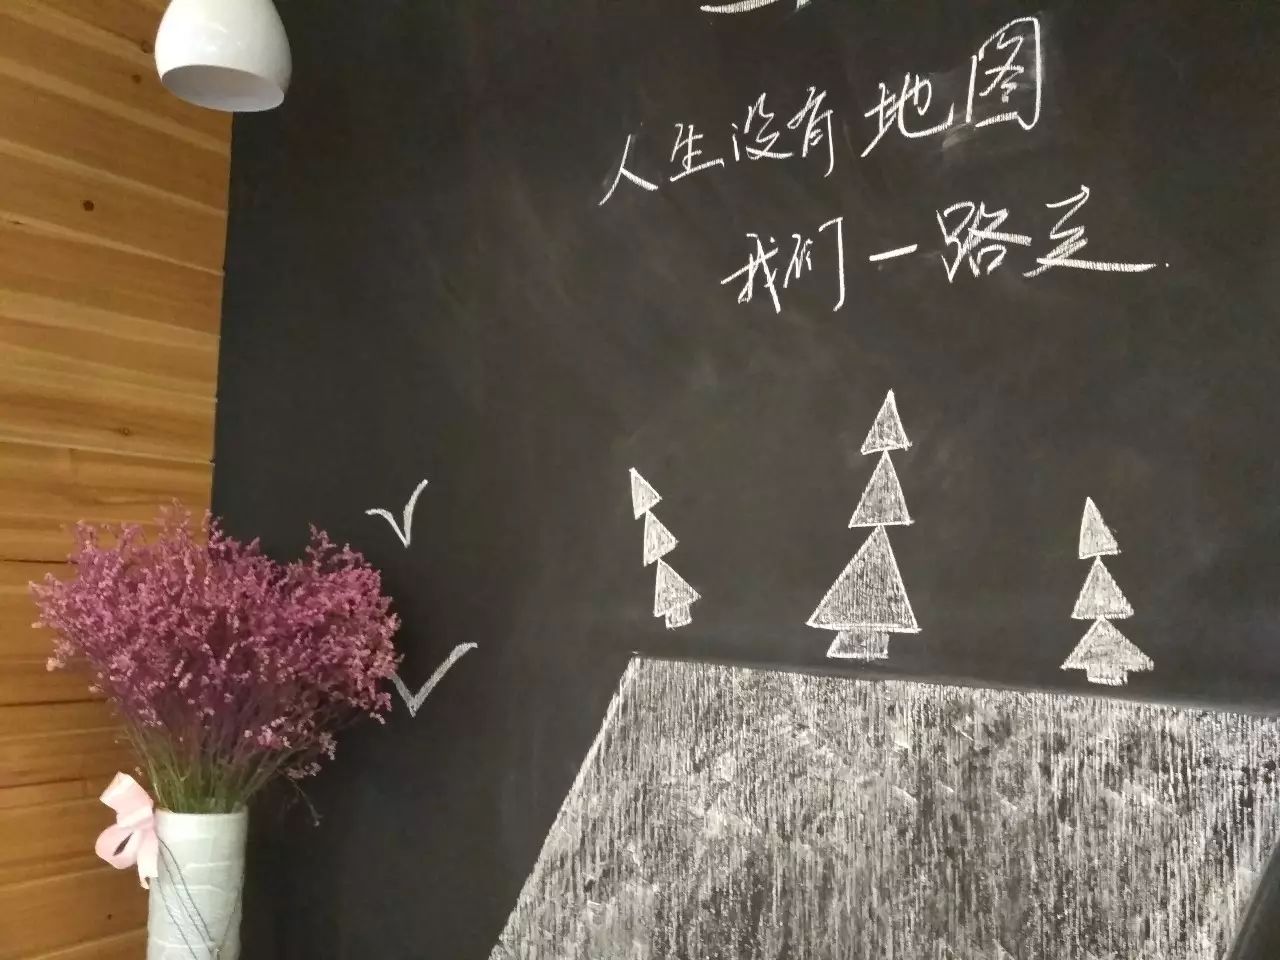 人生没有地图
我们一路走